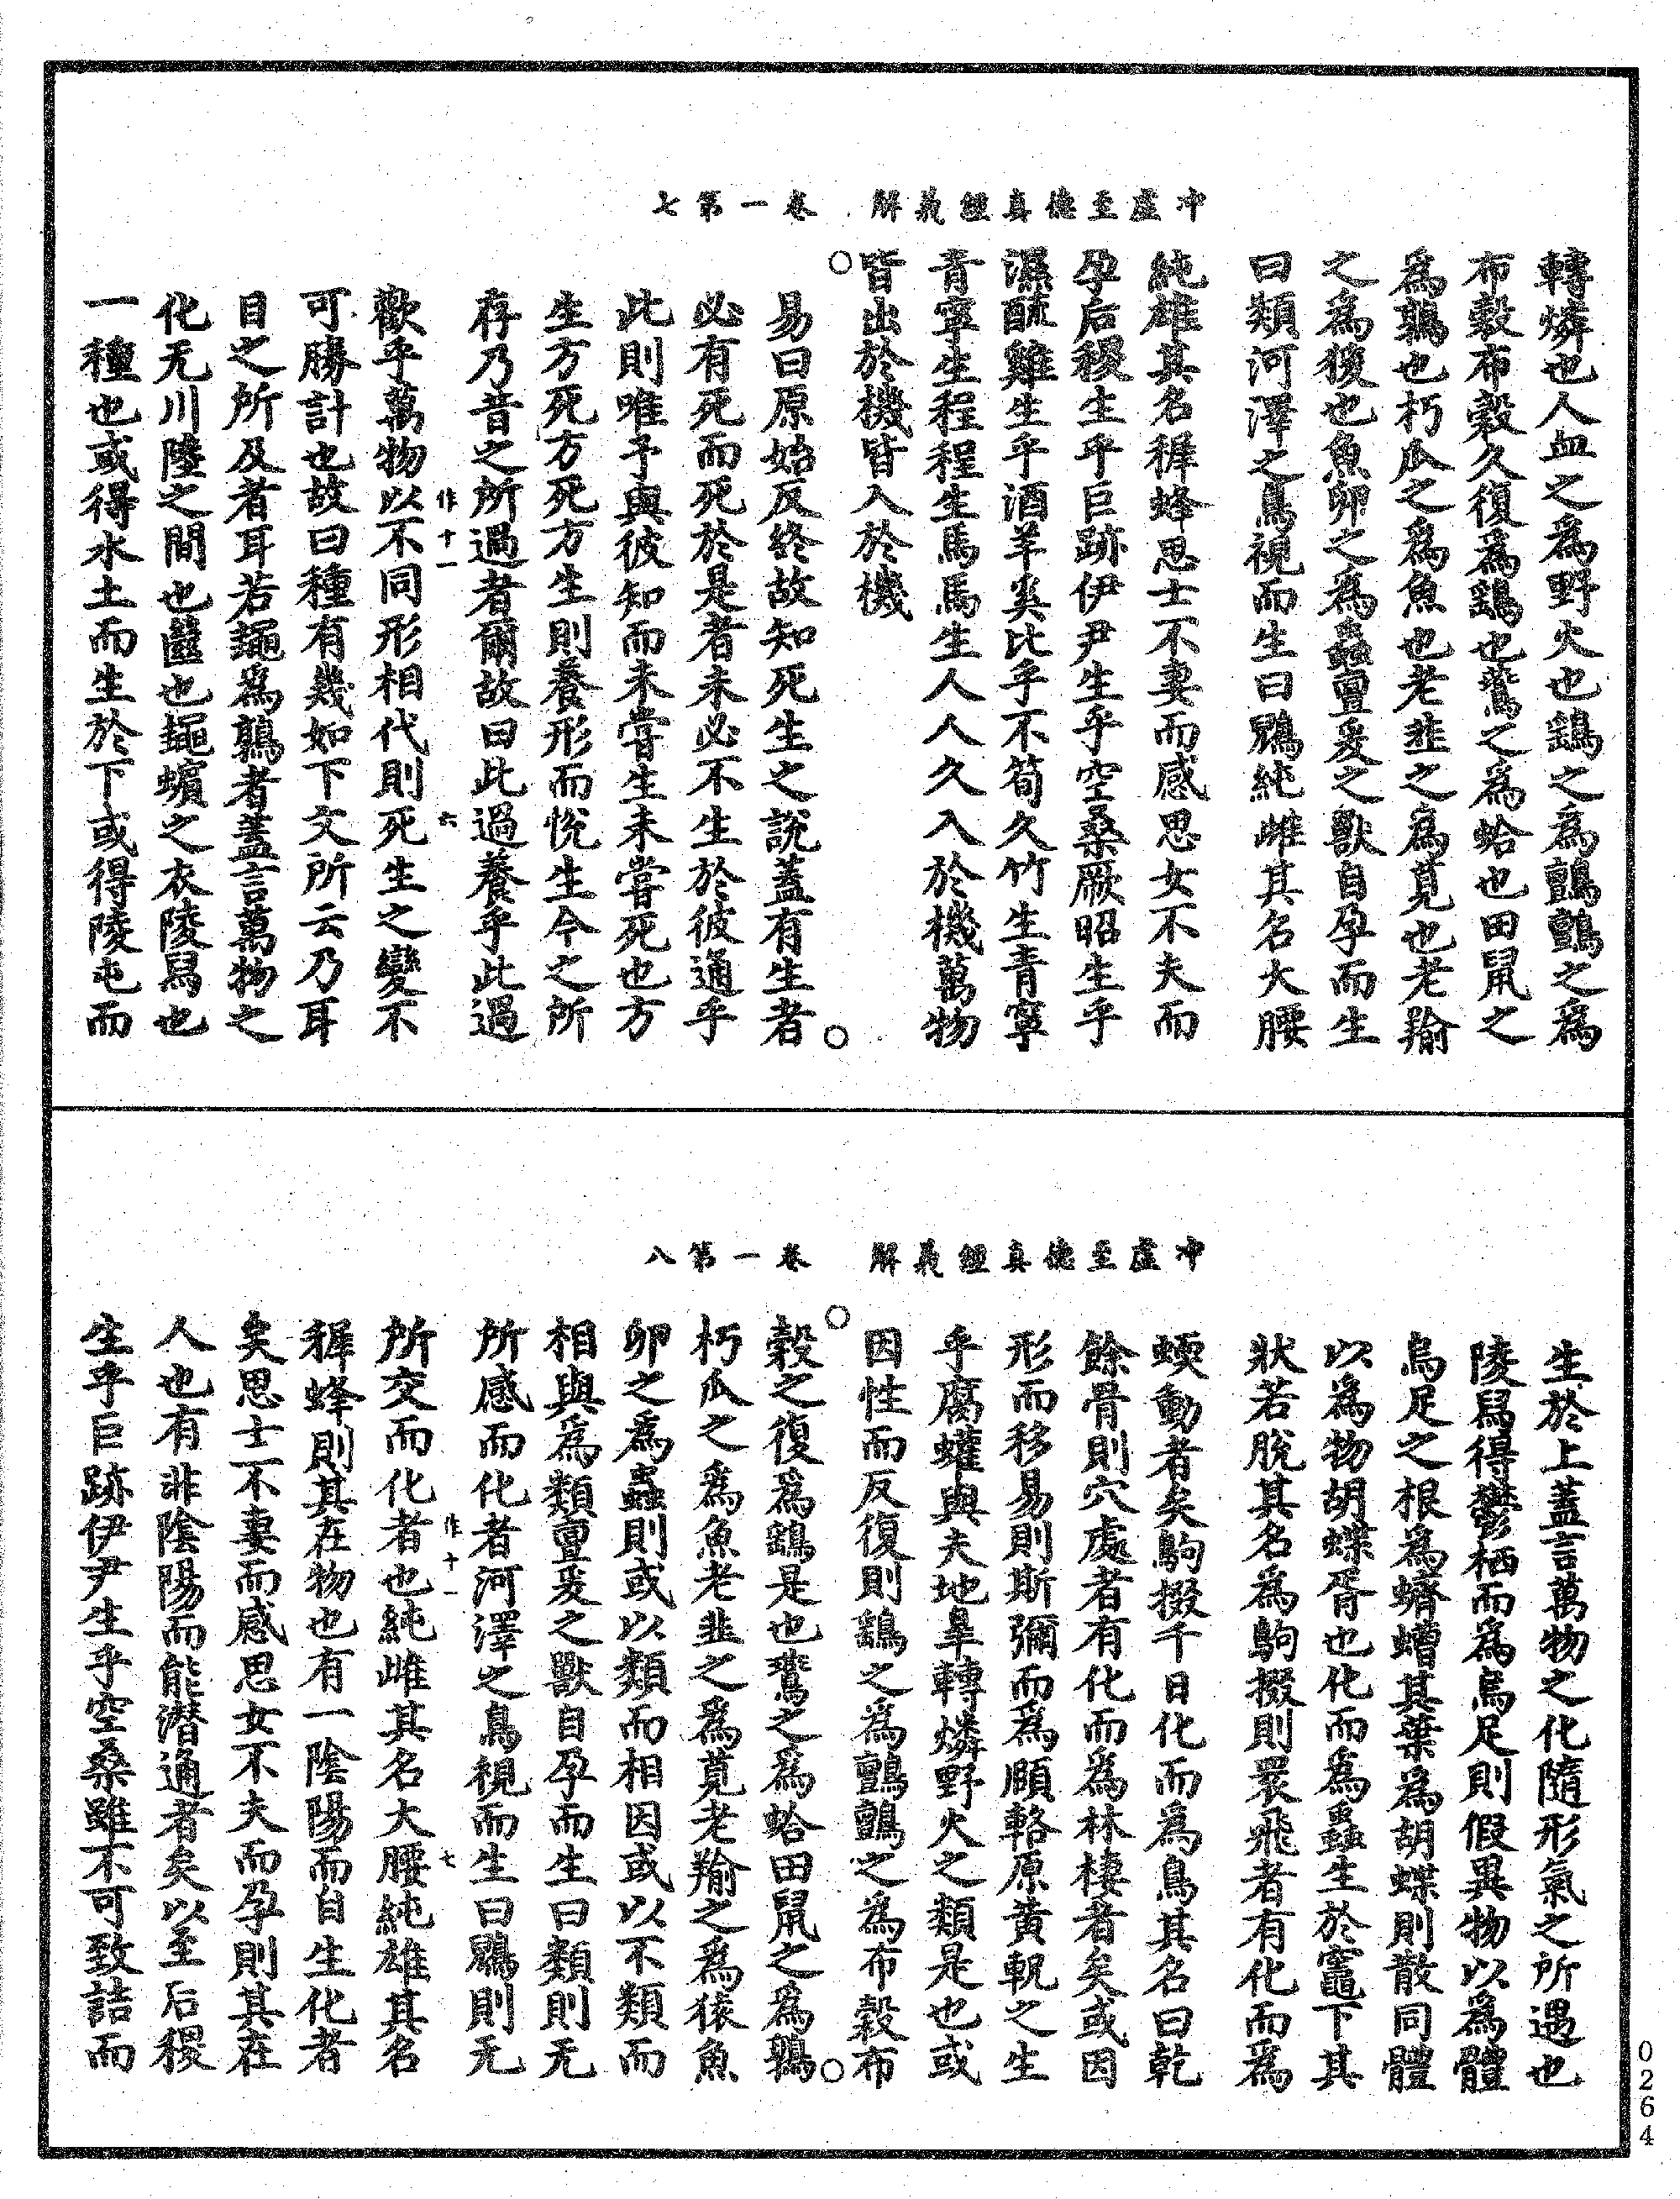 冲虛至德真經義解　卷一第七
轉燐也人血之為野火也鷂之為鸇鸇之為
布穀布穀久復為鷂也鷰之為蛤也田鼠之
為鶉也朽瓜之為魚也老韭之為莧也老羭
之為猨也魚卵之為蟲亶爰之獸自孕而生
曰類河澤之鳥視而生曰鶂純雌其名大腰
純雄其名稺蜂思士不妻而感思女不夫而
孕后稷生乎巨跡伊尹生乎空桑厥昭生乎
濕醯雞生乎酒羊奚比乎不筍久竹生青寧
青寧生程程生馬馬生人人久入於機萬物
皆出於機皆入於機
易曰原始反終故知死生之說蓋有生者
必有死而死於是者未必不生於彼通乎
此則唯予與彼知而未嘗生未嘗死也方
生方死方死方生則養形而悅生今之所
存乃昔之所過者爾故曰此過養乎此過
作十一　六
歡乎萬物以不同形相代則死生之變不
可勝計也故曰種有幾如下文所云乃耳
目之所及者耳若䵷為鶉者蓋言萬物之
化无川陵之間也㡭也䵷蠙之衣陵舄也
一種也或得水土而生於下或得陵屯而
冲虛至德真經義解　卷一第八
生於上蓋言萬物之化隨形氣之所遇也
陵舄得鬱栖而為烏足則假異物以為體
烏足之根為蠐螬其葉為胡蝶則散同體
以為物胡蝶胥也化而為蟲生於竈下其
狀若脫其名為駒掇則䙾飛者有化而為
蝡動者矣駒掇千日化而為鳥其名曰乾
餘骨則穴處者有化而為林棲者矣或因
形而移易則斯彌而為頤輅原黃軦之生
乎腐蠸與夫地皐轉燐野火之類是也或
因性而反復則鷂之為鸇鸇之為布穀布
穀之復為鷂是也鷰之為蛤田鼠之為鶉
朽瓜之為魚老韭之為莧老羭之為猨魚
卵之為蟲則或以類而相因或以不類而
相與為類亶爰之獸自孕而生曰類則无
所感而化者河澤之鳥視而生曰鶂則无
作十一　七
所交而化者也純雌其名大腰純雄其名
稺蜂則其在物也有一陰陽而自生化者
矣思士不妻而感思女不夫而孕則其在
人也有非陰陽而能潛通者矣以至后稷
生乎巨跡伊尹生乎空桑雖不可致詰而
0264